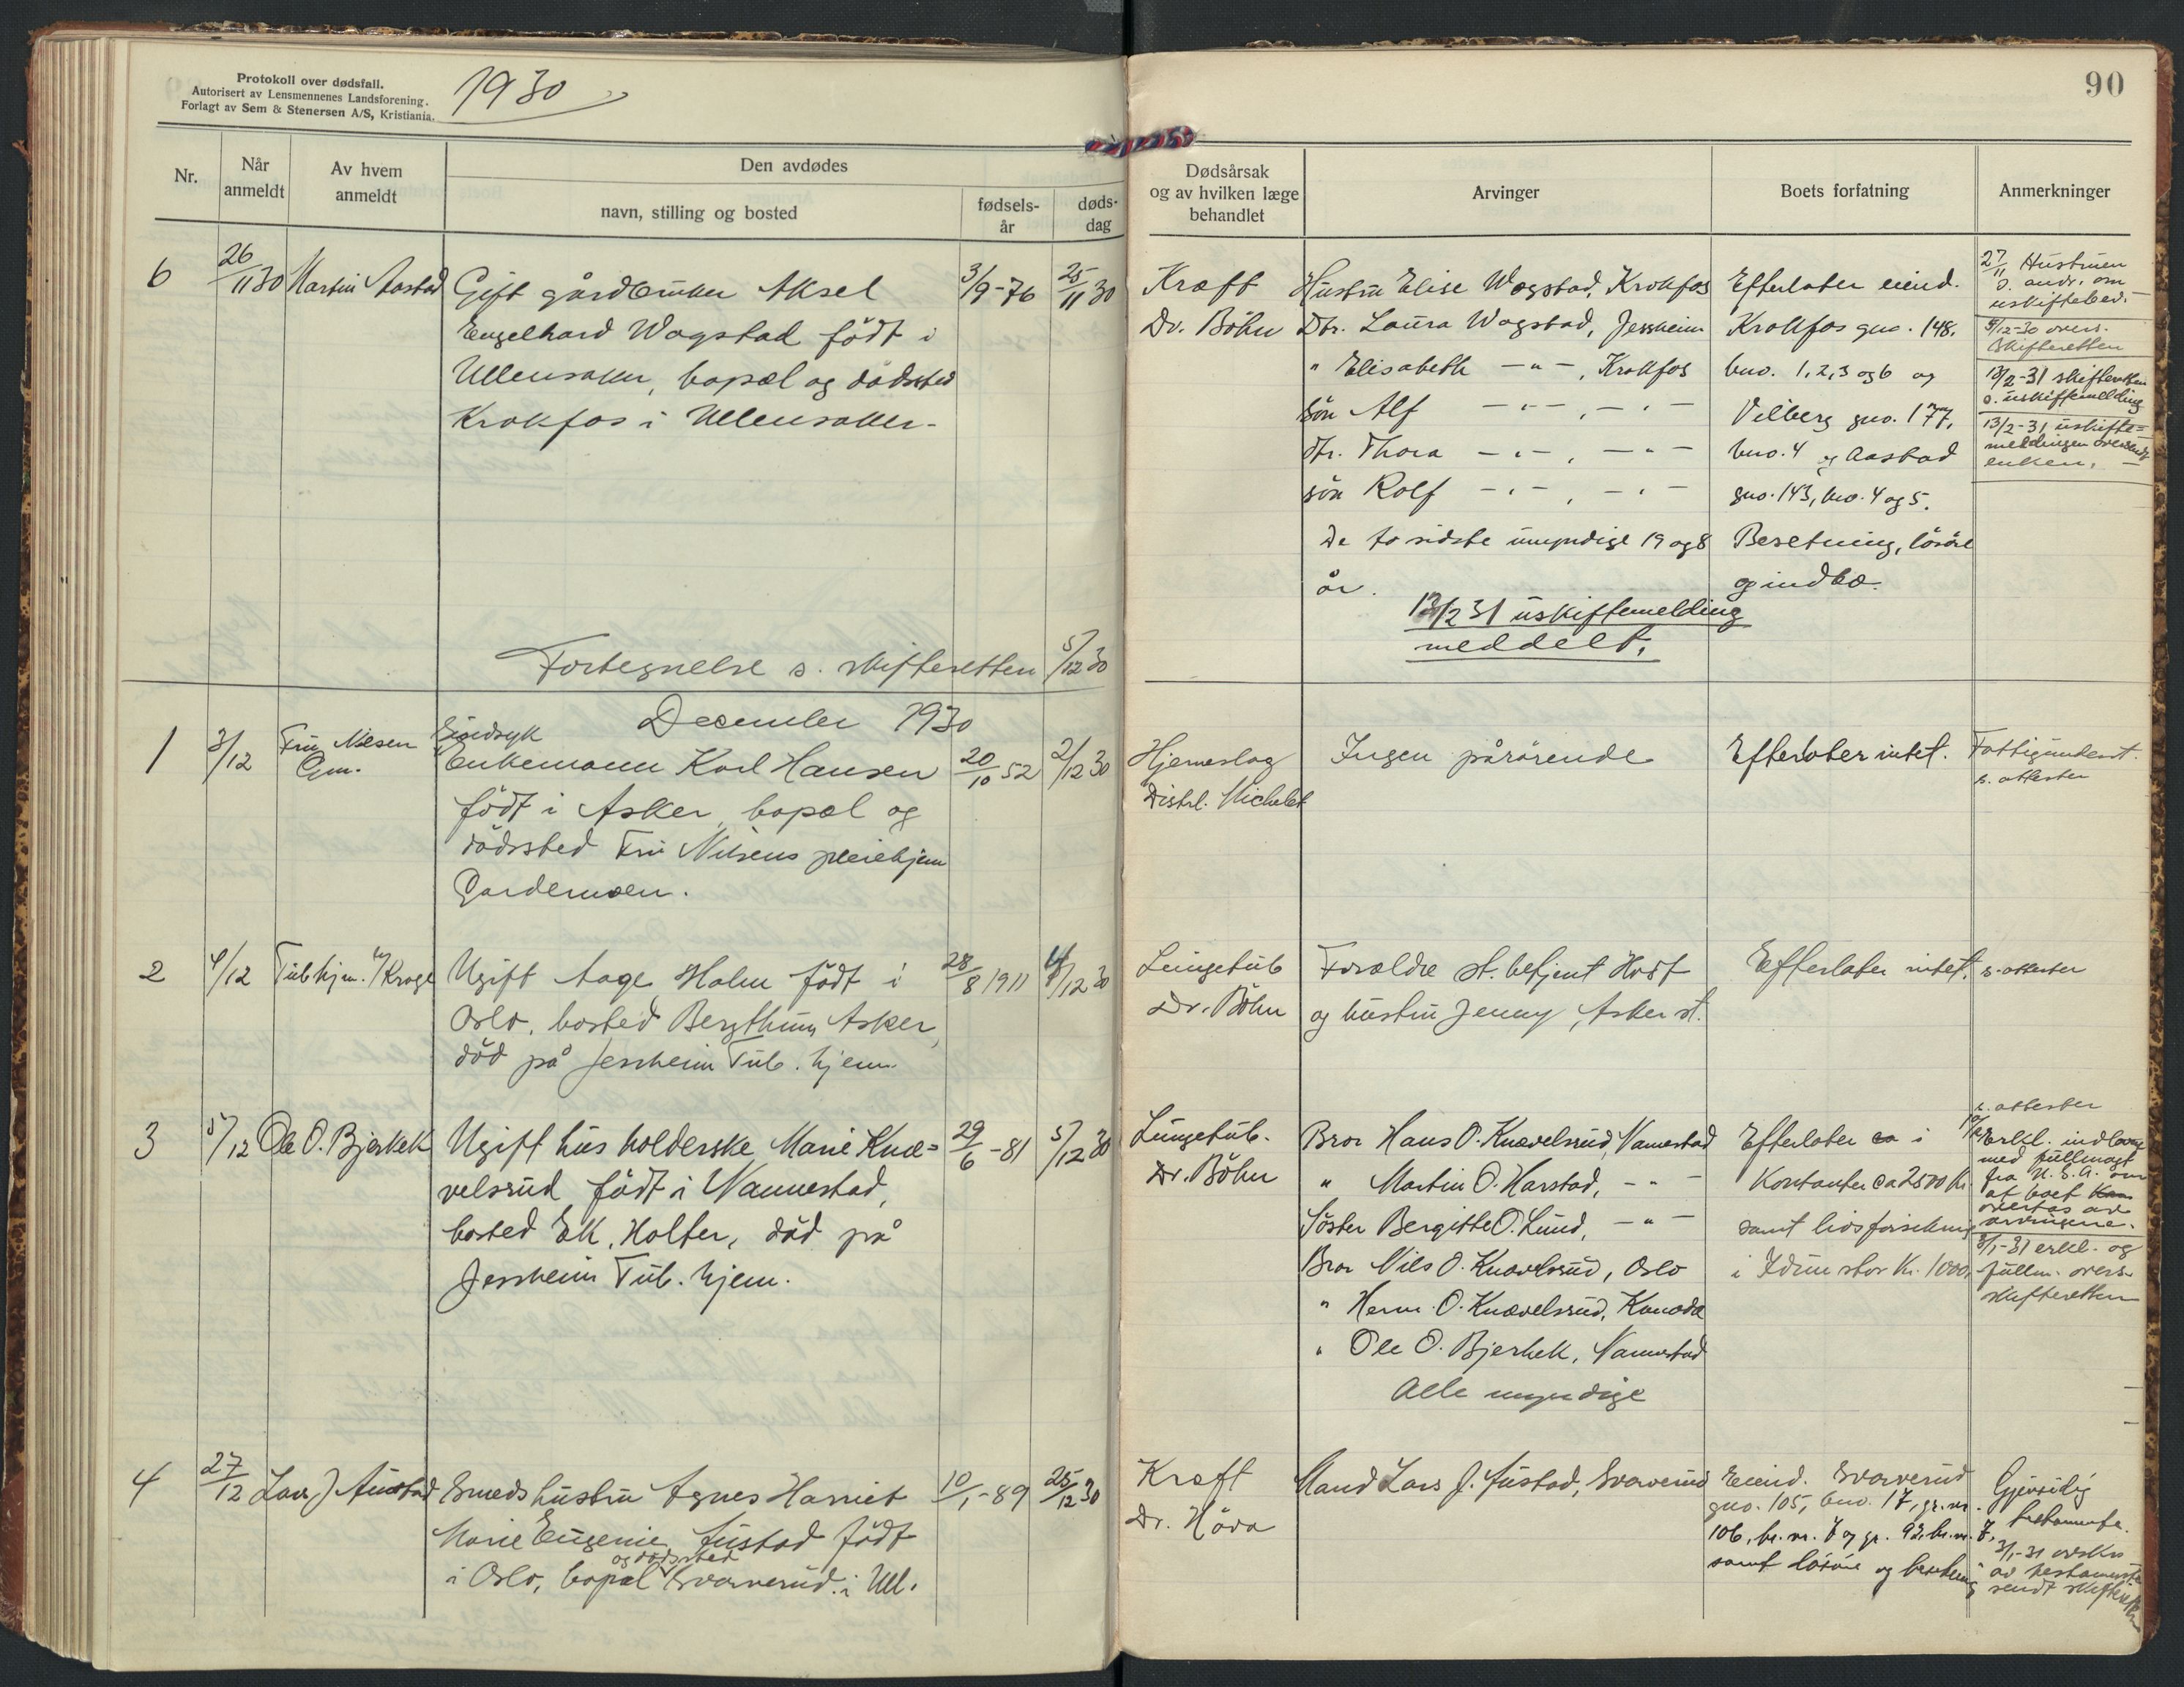 Protokoll over dødsfall.
Autorisert av Lensmennenes Landsforening.
Forlagt av Sem & Stenersen A/S, Kristiania.
1930
Nr.
Når
anmeldt
Av hvem
anmeldt
Den avdødes
navn, stilling og bosted
fødsels-
år
døds-
dag
6
26/11 30
Martin Aastad
Gift gårdbruker Aksel
Engelhard Wogstad födt i
Ullensaker, bopæl og dödssted
Krokfos i Ullensaker.
3/9-76
25/11 30
Fortegnelse s. skifteretten 5/12 30
December 1930
1
3/12
Fru Nilsen
Gm.
Sindsyk
Enkemann Karl Hansen
födt i Asker, bopæl og
dödssted Fru Nilsens pleiehjem
Gardermoen.
20/10 52
2/12 30
2
4/12
Tub hjm. v/ Kroge
Ugift Aage Holm födt i
Oslo, bosted Bergthun, Asker,
död på Jessheim Tub. hjem.
28/8 1911
4/12 30
3
5/12
Ole O. Bjerkek
Ugift husholderske Marie Knæ=
velsrud födt i Nannestad,
bosted Ek, Holter, död på
Jessheim Tub. hjem.
29/6-81
5/12 30
4
27/12
Lars J Austad
Smeds hustru Agnes Harriet
Marie Eugenie Austad födt
og dödssted
i Oslo, bopæl Svarverud i Ull.
10/1-89
25/12 30
90
Dødsårsak
og av hvilken læge
behandlet
Arvinger
Boets forfatning
Anmerkninger
Kræft
Dr. Böhn
Hustru Elise Wogstad, Krokfos
Dtr. Laura Wogstad, Jessheim
" Elisabeth - " -, Krokfos
sön Alf - " -, - " -
dtr. Thora - " -, - " -
sön Rolf - " -, - " -
De to sidste umyndige 19 og 8
år.
13/2 31 uskiftemelding
meddelt.
Efterlater eiend.
Krokfos gno. 148,
bno. 1, 2, 3 og 6 og
Vilberg gno. 177,
bno. 4 og Aastad
gno. 143, bno. 4 og 5.
Besetning, lösöre
og indbo.
27/11 Hustruen
s. andr. om
uskiftebev.
5/12-30 overs.
skifteretten
13/2-31 skifteretten
s. uskiftemelding
13/2-31 uskifte=
meldingen oversendt
enken.
Hjerneslag
Distrl. Michelet
Ingen pårörende
Efterlater intet.
Fattigunderst.
s. attester
Lungetub
Dr. Böhn
Forældre st. betjent Host
og hustru Jenny, Asker st.
Efterlater intet.
s. attester
Lungetub.
Dr. Böhn
Bror Hans O. Knævelsrud, Nannestad
" Martin O. Harstad, - " -
Söster Bergitte O. Lund, - " -
Bror Nils O. Knævelsrud, Oslo
" Herm. O. Knævelsrud, Kanada
" Ole O. Bjerkek, Nannestad
Alle myndige
Efterlater ca i
Kontanter ca 2500 kr.
samt livsforsikring
i Idun stor kr. 1000,
s. attester
Erkl. indlevr.
med fullmagt
fra U. S. A. om
at boet kan
overtas av
arvingene.
3/1-31 erkl. og
fullm. overs.
skifteretten
Kræft
Dr. Höra
Mand Lars J. Austad, Svarverud
Eiend. Svarverud
gno. 105, bno. 17, gr. nr.
106, br. nr. 8 og gr. 92, br. nr. 7,
samt lösöre og besetning
Gjensidig
testamente.
3/1-31 avskr.
av testamente
sendt skifteretten